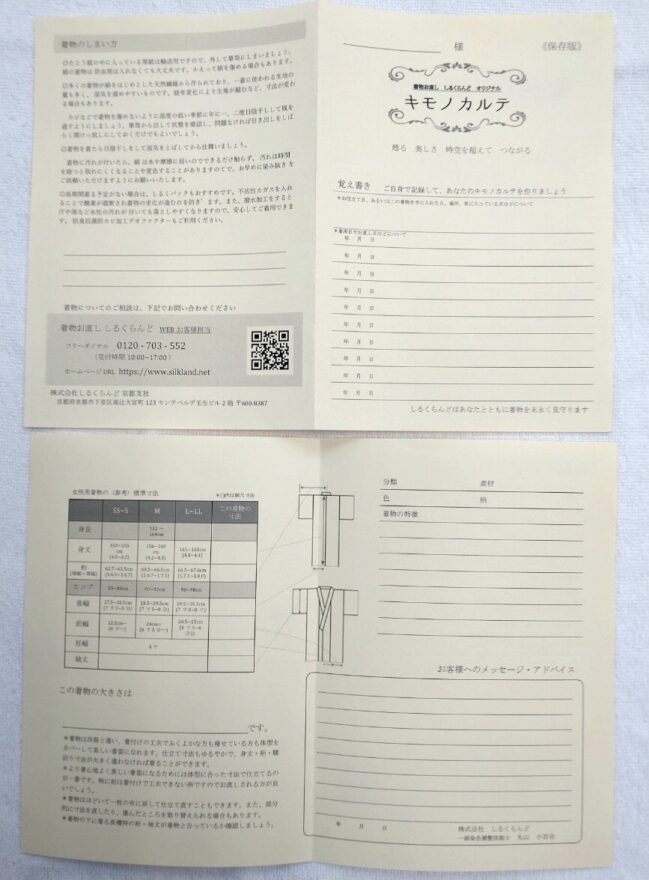 着物のしまい方
◎たとう紙の中に入っている厚紙は輸送用ですので、外して箪笥にしまいましょう。
絹の着物は防虫剤は入れなくても大丈夫です。かえって絹を傷める場合もあります。
◎多くの着物が絹をはじめとした天然繊維から作られており、一番に使われる生地の
量も多く、湿気を溜めやすいものです。経年変化により生地が縮むなど、寸法が変わ
る場合もあります。
カビなどで着物を傷めないように湿度の低い季節に年に一、二度日陰干しして風を
通すようにしましょう。箪笥から出して状態を確認し、問題なければ引き出しをしば
らく開けっ放しにしておくだけでもよいでしょう。
◎着物を着たら日陰干しをして湿気をとばしてから仕舞いましょう。
着物に汚れが付いたら、絹は水や摩擦に弱いのでできるだけ触らず、汚れは時間
を経つと取れにくくなることや変色することがありますてので、お早めに染み抜きな
ど依頼いただけますようにお願いいたします。
◎長期間着る予定がない場合は、しるくパックもおすすめです。不活性ガスを入れ
ることで酸素が遮断され着物の劣化が進むのを防ぎます。また、撥水加工をすると
汗や雨など水性の汚れが付いても落としやすくなりますので、安心してご着用できま
す。防臭抗菌防カビ加工デオファクターもご利用ください。
着物についてのご相談は、下記でお問い合わせください
着物お直し しるくらんど WEBお客様担当
フリーダイヤル 0120-703-552
（受付時間 10:00~17:00）
ホームページURL https://www.silkland.net
株式会社しるくらんど 京都支社
京都府京都市下京区高辻大宮町 123 モンテベルデ壬生ビル2階 〒600-8387
様 《保存版》
着物お直し しるくらんど オリジナル
キモノカルテ
甦る 美しさ 時空を超えて つながる
覚え書き ご自身で記録して、あなたのキモノカルテを作りましょう
*お仕立て日、あるいはこの着物を手に入れた日、場所、気に入っている点などについて
*着用日やお直し日などについて
年 月 日
年 月 日
年 月 日
年 月 日
年 月 日
年 月 日
年 月 日
年 月 日
年 月 日
しるくらんどはあなたとともに着物を末永く見守ります
女性用着物の（参考）標準寸法 *( )内は鯨尺寸法
SS~S M L~LL この着物の寸法
身長
身丈
裄
ヒップ
後幅
前幅
衽幅 4寸
袖丈
この着物の大きさは
です。
*着物は洋服と違い、着付けの工夫でふくよかな方も痩せている方も体型を
カバーして美しい着姿になれます。仕立て寸法もゆるやかで、身丈・裄・腰
回り寸法が大きく違わなければ着ることができます。
*より着心地よく美しい着姿になるためには体型に合った寸法で仕立てるの
が一番です。特に裄は着付けで工夫できない所ですのでお直しされる方が良
いでしょう。
*着物はほどいて一枚の布に戻して仕立て直すこともできます。また、部分
的に寸法を直したり、傷んだところを取り替えられる場合もあります。
*着物の下に着る長襦袢の裄・袖丈が着物と合っているか確認しましょう。
分類 素材
色 柄
着物の特徴
お客様へのメッセージ・アドバイス
年 月 日
株式会社 しるくらんど
一級染色補整技能士 丸山 小百合